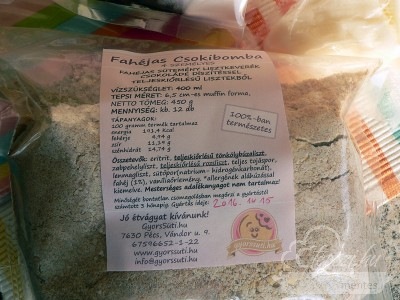 Fahéjas Csokibomba
4 SZEMÉLYES
FAHÉJAS SÜTEMÉNY LISZTKEVERÉK
CSOKOLÁDÉ DÍSZÍTÉSSEL
TELJESKIŐRLÉSŰ LISZTEKBŐL
VÍZSZÜKSÉGLET: 400 ml
TEPSI MÉRET: 6,5 cm-es muffin forma,
NETTO TÖMEG: 450 g
MENNYISÉG: kb. 12 db
TÁPANYAGOK:
100 gramm termék tartalmaz
energia 193,4 kcal
fehérje 9,94 g
zsír 11,39 g
szénhidrát 14,74 g
100%-ban
természetes
Összetevők: eritrit, teljeskiőrlésű tönkölybúzaliszt,
zabpehelyliszt, teljeskiőrlésű rozsliszt, teljes tojáspor,
lenmagliszt, sütőpor(natrium - hidrogénkarbonát),
fahéj (1%), vaníliaőrlemény. *allergének aláhúzással
kiemelve. Mesterséges adalékanyagot nem tartalmaz!
Minőségét bontatlan csomagolásban megőrzi a gyártástól
számított 3 hónapig. Gyártás ideje: 2016. 10 15
Jó étvágyat kívánunk!
GyorsSüti.hu
7630 Pécs, Vándor u. 9.
67596652-1-22
www.gyorssuti.hu
info@gyorssuti.hu
gyorssuti.hu
mentes